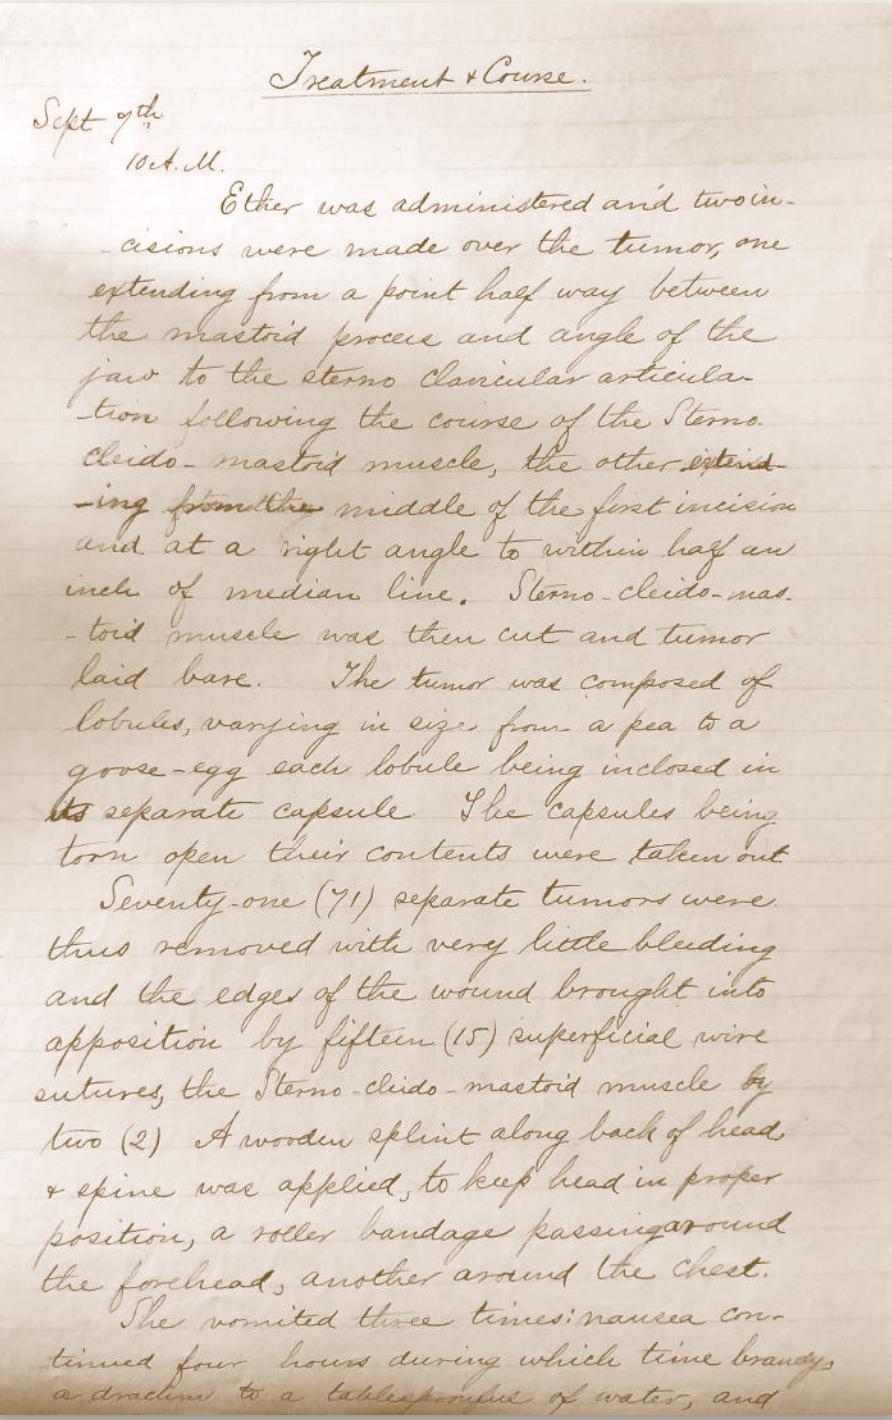 Treatment & Course.
Sept 7th
10 A.M.
Ether was administered and two in-
-cisions were made over the tumor, one
extending from a point half way between
the mastoid process and angle of the
jaw to the sterno clavicular articula-
-tion following the course of the Sterno.
cleido-mastoid muscle, the other extend-
-ing from the middle of the first incision
and at a right angle to within half an
inch of median line. Sterno-cleido-mas.
-toid muscle was then cut and tumor
laid bare. The tumor was composed of
lobules, varying in size from a pea to a
goose-egg each lobule being inclosed in
its separate capsule. The capsules being
torn open their contents were taken out
Seventy-one (71) separate tumors were
thus removed with very little bleeding
and the edges of the wound brought into
apposition by fifteen (15) superficial wire
sutures, the Sterno-cleido-mastoid muscle by
two (2) A wooden splint along back of head
& spine was applied, to keep head in proper
position, a roller bandage passing around
the forehead, another around the chest.
She vomited three times: nausea con-
tinued four hours during which time brandy,
a drachm to a tablespoonful of water, and